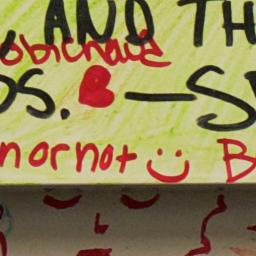 AND TH
obichaud
OS. ❤—S
n or not ü B